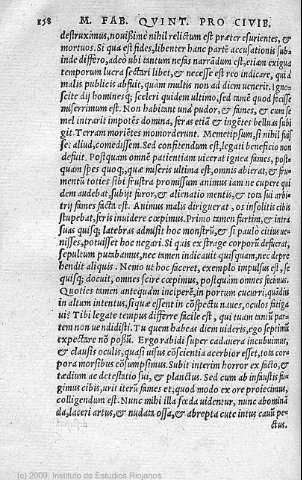 158 M. FAB. QVINT. PRO CIVIB.
destruximus, nouissimè nihil relictum est præter esurientes, &
mortuos. Si qua est fides, libenter hanc partē accusationis sub
inde differo, adeò ubi tantum nefas narrādum est, etiam exigua
temporum lucra sectari libet, & necesse est reo indicare, qui
malis publicis absuit, quàm multis non ad diem uenerit. Igno
scite dij homines sceleri quidem ultimo, sed tamē quod fecisse
miserrimum est. Non habitunt unā pudor, & fames, & cum se
mel intrarit impotēs domina, feras etiā & ingētes belluas subi
git. Terram moriētes momorderunt. Memetipsum, si nihil fuis
set aliud, comedissem. Sed confitendum est, legati beneficio non
defuit. Postquam omnē patientiam uicerat ignea fames, post
quam spes quoque, quæ miseris ultima est, omnis abierat, & fru
mentū toties sibi frustra promissum animus iam ne cupere qui
dem audebat, subijt furor, & alienatio mentis, & tota sui arbi
trij fames facta est. Animus malis diriguerat, os insolitis cibis
stupebat, feris inuidere cœpimus. Primo tamen furtim, & intra
suas quisque latebras admisit hoc monstrū, & si paulo citiùs ue-
nisses, potuisset hoc negari. Si quis ex strage corporū defuerat,
sepultum putabamus, nec tamen indicauit quisquam, nec depre
hendit aliquis. Nemo ut hoc faceret, exemplo impulsus est, se
quisque docuit, omnes scire cœpimus, postquàm omnes fecimus.
Quoties tamen antequam inciperē, in portum cucurri, quādiu
in altum intentus, si quæ essent in cōspectu naues, oculos fatiga
ui? Tibi legate tempus differre facile est, qui tuam enim par
tem non uendidisti. Tu quem habeas diem uideris, ego septimū
expectare nō possū. Ergo rabidi super cadauera incubuimus,
& clausis oculis, quasi uisus cōscientia acerbior esset, tota cor
pora morsibus cōsumpsimus. Subit interim horror ex facto, &
tædium ac detestatio sui, & planctus. Sed cum ab infaustis fu
gimus cibis, urit iterū fames et, quod modo ex ore proiecimus,
colligendum est. Nunc mihi illa fœda uidentur, nunc abomina
da, laceri artus, & nudata ossa, & abrepta cute intus cauū pe-
ctus.
(c) 2009. Instituto de Estudios Riojanos